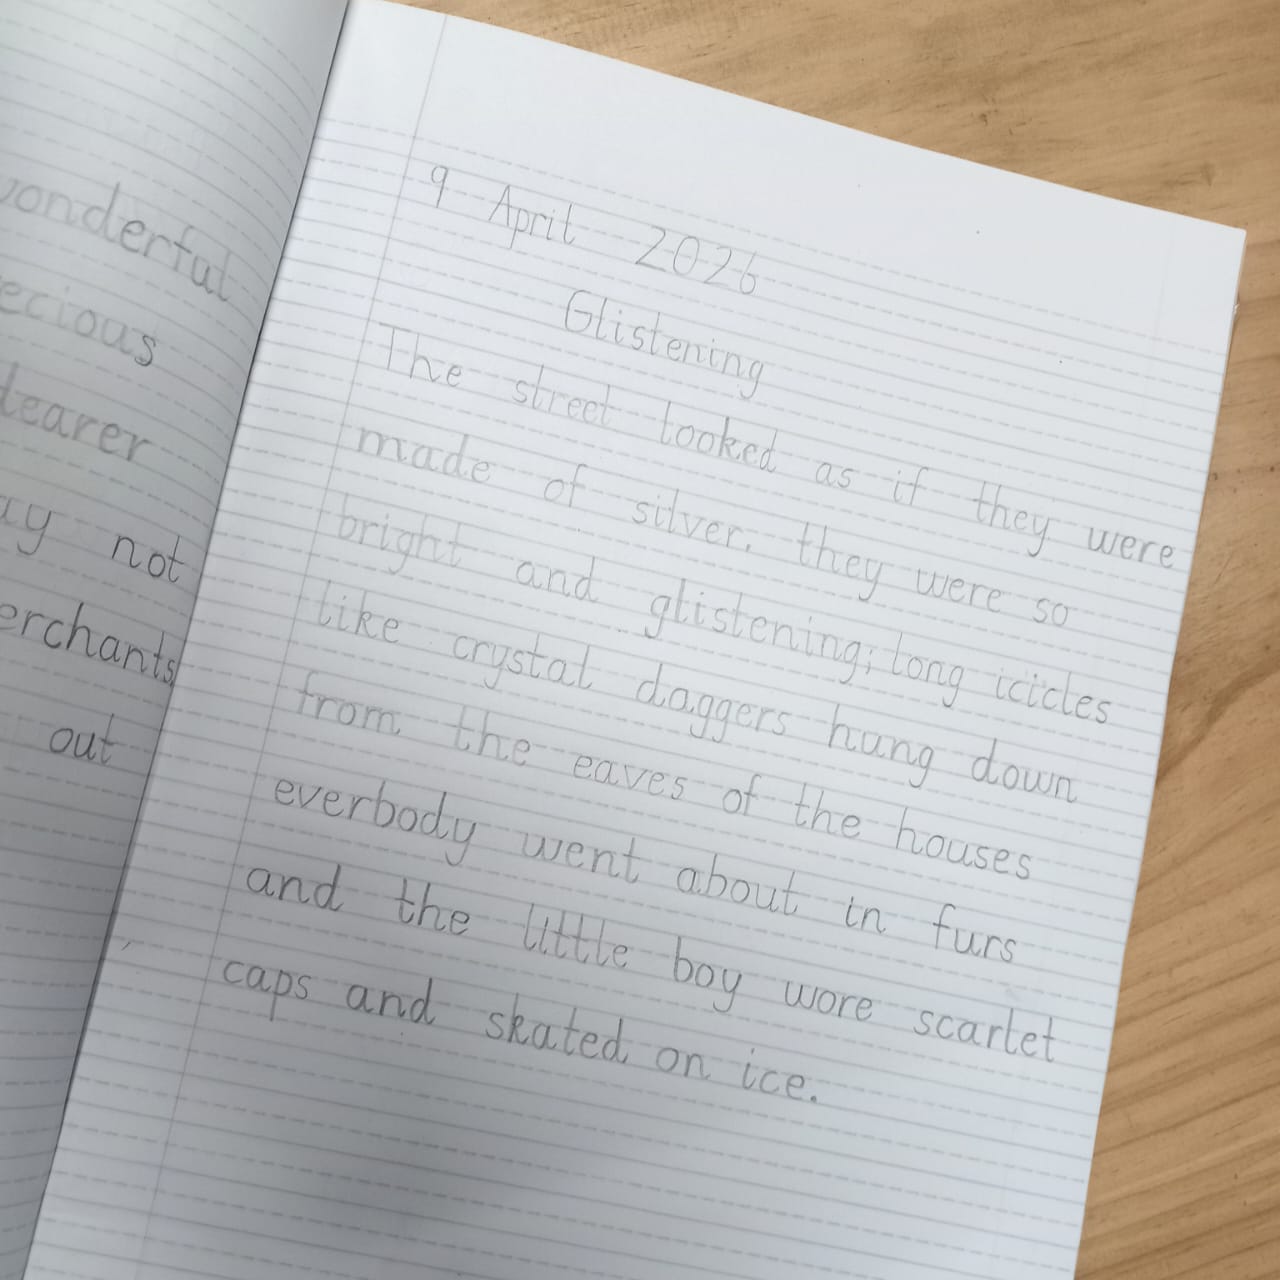 wonderful
ecious
dearer
ay not
erchants
out
9 April 2026
Glistening
The street looked as if they were
made of silver. they were so
bright and glistening; long icicles
like crystal daggers hung down
from the eaves of the houses
everbody went about in furs
and the little boy wore scarlet
caps and skated on ice.